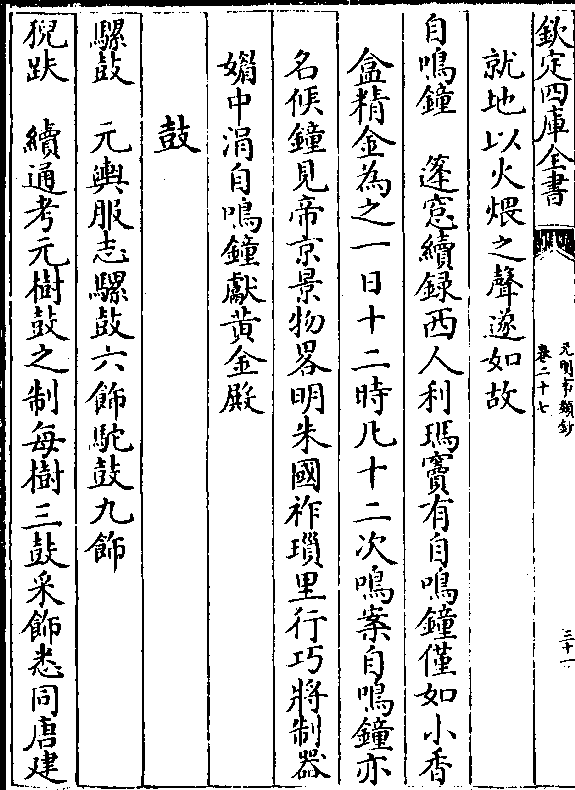 欽定四庫全書
元明事類鈔
卷二十七
三十一
就地以火煨之聲遂如故
自鳴鐘　篷窓續録西人利瑪竇有自鳴鐘僅如小香
盒精金為之一日十二時凡十二次鳴案自鳴鐘亦
名候鐘見帝京景物畧明朱國祚瓆里行巧將制器
媚中涓自鳴鐘獻黄金殿
鼓
騾鼓　元輿服志騾鼓六飾駝鼓九飾
猊趺　續通考元樹鼓之制每樹三鼓采飾悉同唐建